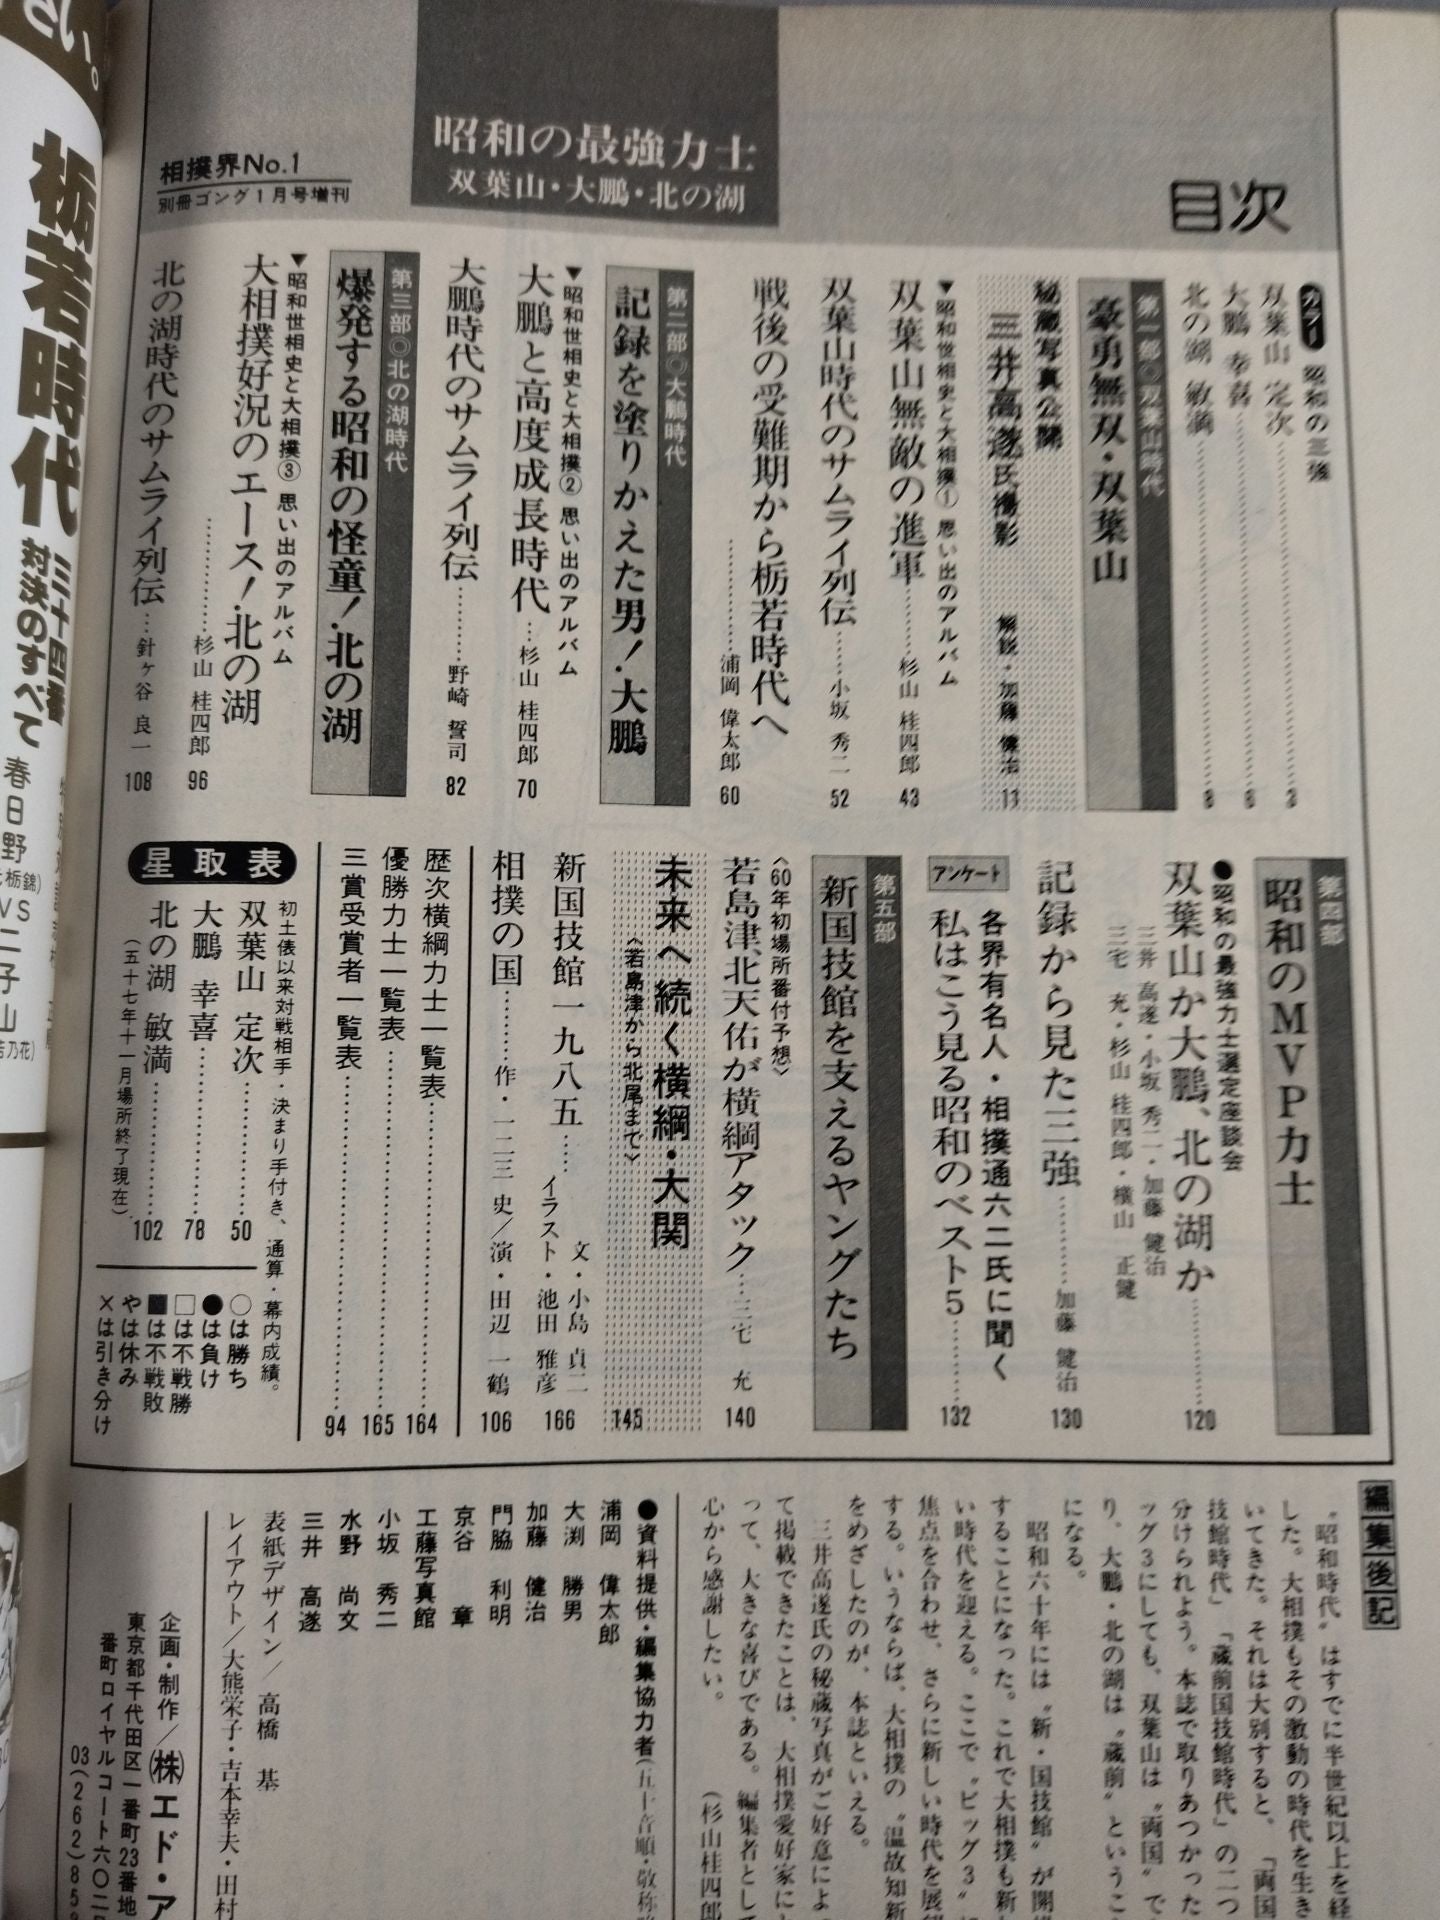 目次
昭和の最強力士
双葉山・大鵬・北の湖
相撲界No.1
別冊ゴング1月号増刊
カラー 昭和の三強
双葉山 定次……3
大鵬 幸喜……6
北の湖 敏満……8
第一部◎双葉山時代
豪勇無双・双葉山
秘蔵写真公開
三井高遂氏撮影 解説・加藤 健治 11
▼昭和世相史と大相撲① 思い出のアルバム
双葉山無敵の進軍……杉山 桂四郎 43
双葉山時代のサムライ列伝……小坂 秀二 52
戦後の受難期から栃若時代へ
……浦岡 偉太郎 60
第二部◎大鵬時代
記録を塗りかえた男!大鵬
▼昭和世相史と大相撲② 思い出のアルバム
大鵬と高度成長時代…杉山 桂四郎 70
大鵬時代のサムライ列伝……野崎 誓司 82
第三部◎北の湖時代
爆発する昭和の怪童!北の湖
▼昭和世相史と大相撲③ 思い出のアルバム
大相撲好況のエース!北の湖
……杉山 桂四郎 96
北の湖時代のサムライ列伝…針ヶ谷 良一 108
第四部
昭和のMVP力士
●昭和の最強力士選定座談会
双葉山か大鵬、北の湖か……120
三井 高遂・小坂 秀二・加藤 健治
三宅 充・杉山 桂四郎・横山 正健
記録から見た三強……加藤 健治 130
アンケート 各界有名人・相撲通六二氏に聞く
私はこう見る昭和のベスト5……132
第五部
新国技館を支えるヤングたち
〈60年初場所番付予想〉
若島津、北天佑が横綱アタック…三宅 充 140
未来へ続く横綱・大関
〈若島津から北尾まで〉 145
新国技館一九八五…… 文・小島 貞二
イラスト・池田 雅彦 166
相撲の国……作・一二三 史/演・田辺 一鶴 106
歴次横綱力士一覧表……164
優勝力士一覧表……165
三賞受賞者一覧表……94
星取表
初土俵以来対戦相手・決まり手付き、通算・幕内成績。
双葉山 定次……50
大鵬 幸喜……78
北の湖 敏満……102
(五十七年十一月場所終了現在)
○は勝ち
●は負け
□は不戦勝
■は不戦敗
やは休み
×は引き分け
編集後記
〝昭和時代〟はすでに半世紀以上を経
した。大相撲もその激動の時代を生き
いてきた。それは大別すると、「両国
技館時代」「蔵前国技館時代」の二つ
分けられよう。本誌で取りあつかった
ッグ3にしても、双葉山は〝両国〟で
り、大鵬・北の湖は〝蔵前〟というこ
になる。
昭和六十年には〝新・国技館〟が開
することになった。これで大相撲も新
い時代を迎える。ここで〝ビッグ3〟
焦点を合わせ、さらに新しい時代を展
する。いうならば、大相撲の〝温故知新
をめざしたのが、本誌といえる。
三井高遂氏の秘蔵写真がご好意によ
て掲載できたことは、大相撲愛好家に
って、大きな喜びである。編集者として
心から感謝したい。 (杉山桂四郎
●資料提供・編集協力者(五十音順・敬称
浦岡 偉太郎
大渕 勝男
加藤 健治
門脇 利明
京谷 章
工藤写真館
小坂 秀二
水野 尚文
三井 高遂
表紙デザイン/高橋 基
レイアウト/大熊栄子・吉本幸夫・田村
企画・制作/㈱エド・ア
東京都千代田区一番町23番地
番町ロイヤルコート六〇二
03(262)85
さい。
栃若時代
三十四番
対決のすべて
春日野
栃錦)
VS
二子山
若乃花)